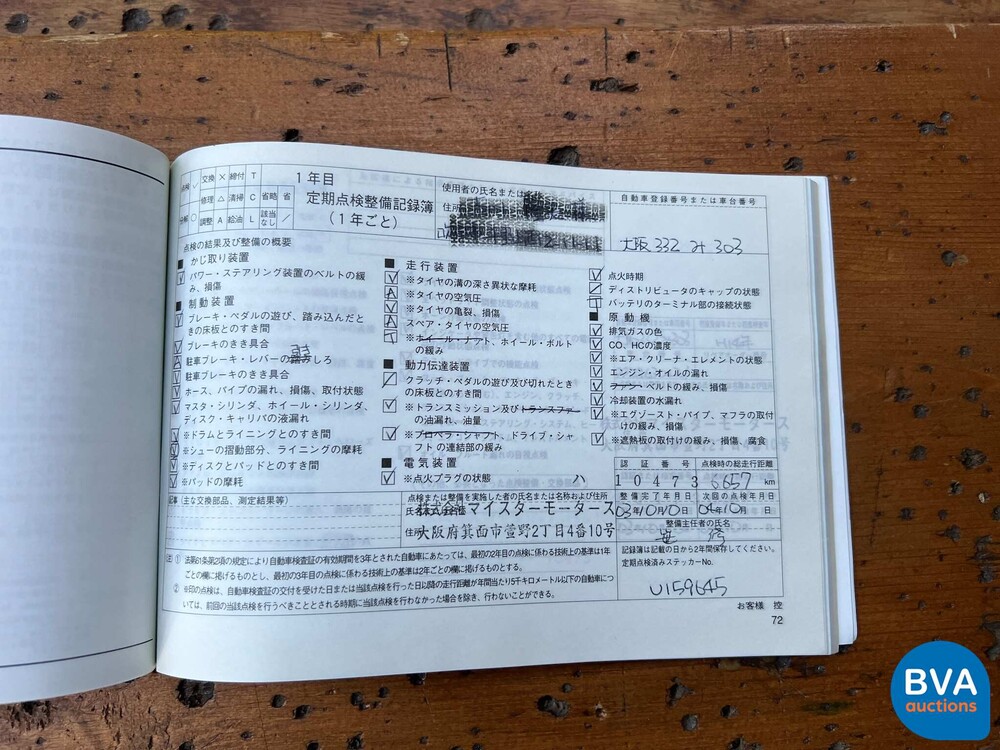 交換 × 締付 T
修理 △ 清掃 C 省略 省
分解 ○ 調整 A 給油 L 該当なし ／
1年目
定期点検整備記録簿
(1年ごと)
使用者の氏名または
住所
自動車登録番号または車台番号
大阪 332 み 303
点検の結果及び整備の概要
■ かじ取り装置
パワー・ステアリング装置のベルトの緩
み、損傷
■ 制動装置
ブレーキ・ペダルの遊び、踏み込んだと
きの床板とのすき間
ブレーキのきき具合
駐車ブレーキ・レバーの しろ
駐車ブレーキのきき具合
ホース、パイプの漏れ、損傷、取付状態
マスタ・シリンダ、ホイール・シリンダ、
ディスク・キャリパの液漏れ
※ドラムとライニングとのすき間
※シューの摺動部分、ライニングの摩耗
※ディスクとパッドとのすき間
※パッドの摩耗
■ 走行装置
※タイヤの溝の深さ異状な摩耗
※タイヤの空気圧
※タイヤの亀裂、損傷
スペア・タイヤの空気圧
※ホイール・ナット、ホイール・ボルト
の緩み
■ 動力伝達装置
クラッチ・ペダルの遊び及び切れたとき
の床板とのすき間
※トランスミッション及びトランスファ
の油漏れ、油量
※プロペラ・シャフト、ドライブ・シャ
フトの連結部の緩み
■ 電気装置
※点火プラグの状態
点火時期
ディストリビュータのキャップの状態
バッテリのターミナル部の接続状態
■ 原動機
排気ガスの色
CO、HCの濃度
※エア・クリーナ・エレメントの状態
エンジン・オイルの漏れ
ファン・ベルトの緩み、損傷
冷却装置の水漏れ
※エグゾースト・パイプ、マフラの取付
けの緩み、損傷
※遮熱板の取付けの緩み、損傷、腐食
認証番号 点検時の総走行距離
10473 6657 km
整備完了年月日 次回の点検年月日
03年10月10日 04年10月 日
整備主任者の氏名
記事 (主な交換部品、測定結果等)
点検または整備を実施した者の氏名または名称および住所
株式会社マイスターモータース
大阪府箕面市萱野2丁目4番10号
記録簿は記載の日から2年間保存してください。
定期点検済みステッカーNo.
U159645
(注) ① 法第61条第2項の規定により自動車検査証の有効期間を3年とされた自動車にあたっては、最初の2年目の点検に係わる技術上の基準は1年
ごとの欄に掲げるものとし、最初の3年目の点検に係わる技術上の基準は2年ごとの欄に掲げるものとする。
② ※印の点検は、自動車検査証の交付を受けた日または当該点検を行った日以降の走行距離が年間当り5千キロメートル以下の自動車につ
いては、前回の当該点検を行うべきこととされる時期に当該点検を行わなかった場合を除き、行わないことができる。
お客様 控
72
BVA
auctions